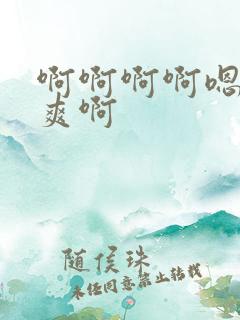 啊啊啊啊嗯
爽啊
随侯珠
未经同意禁止转载